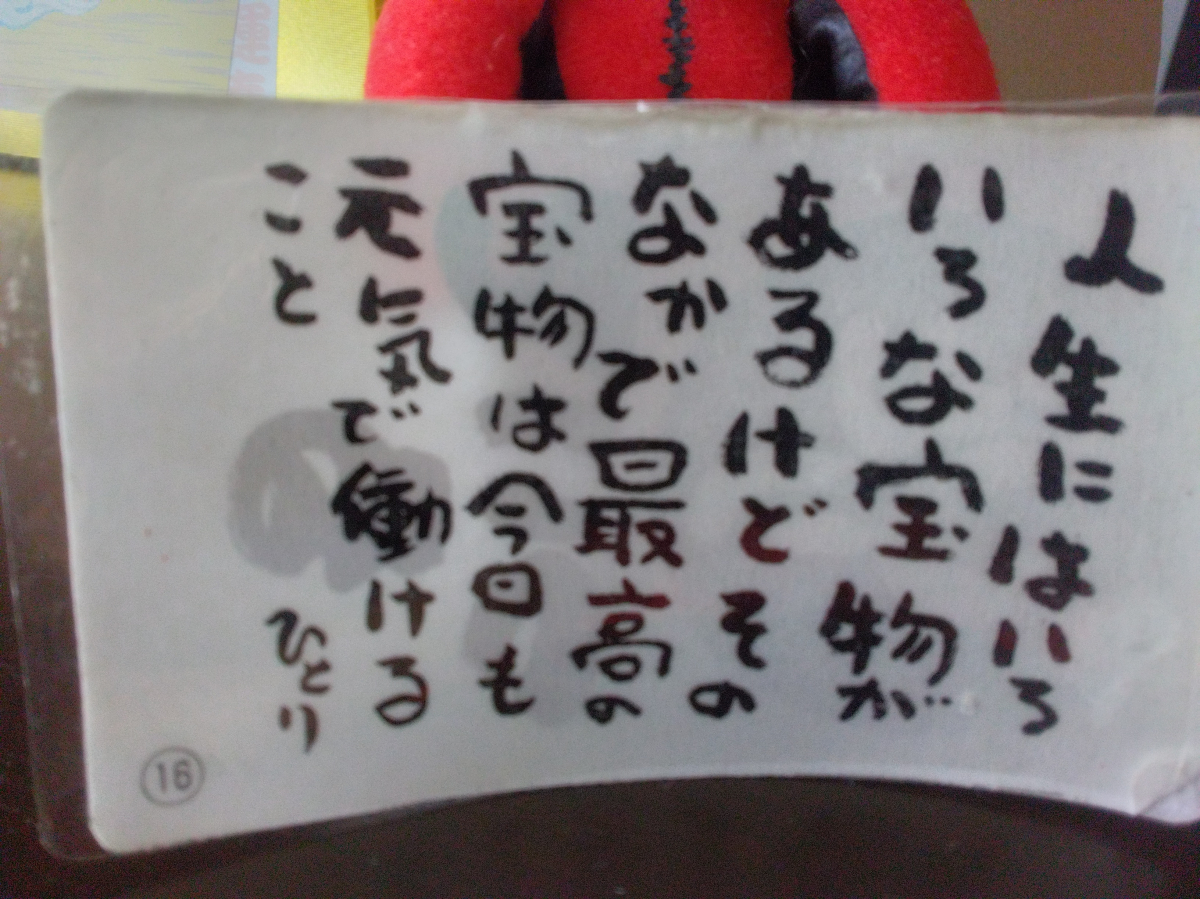 人生にはいろ
いろな宝物が
あるけどその
なかで最高の
宝物は今日も
元気で働ける
こと
ひとり
⑯